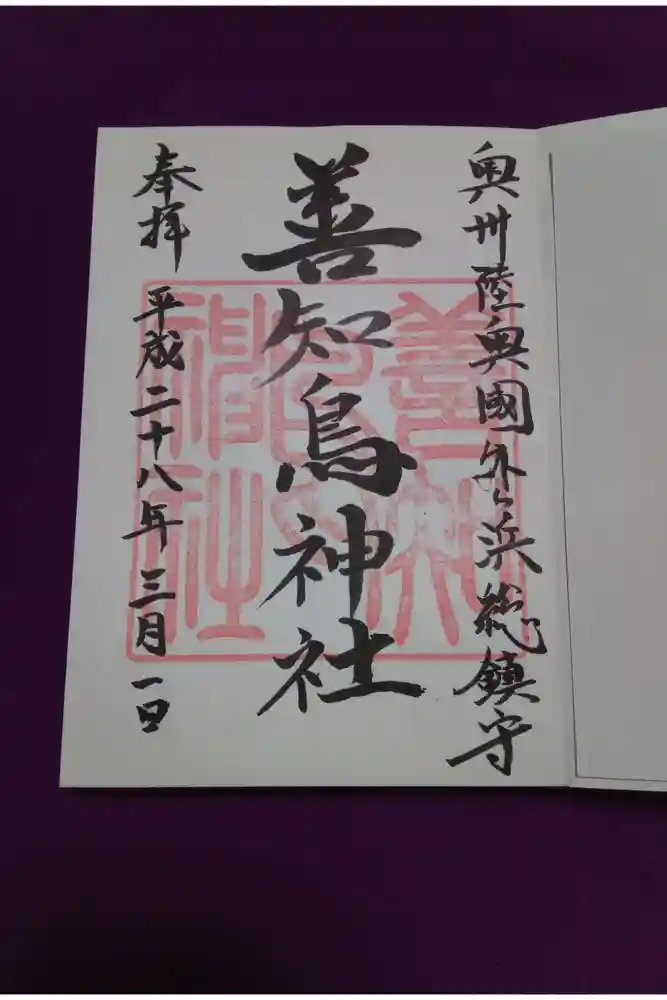 奥州陸奥國外ヶ浜総鎮守
善知鳥神社
奉拝 平成二十八年三月一日
善知鳥神社